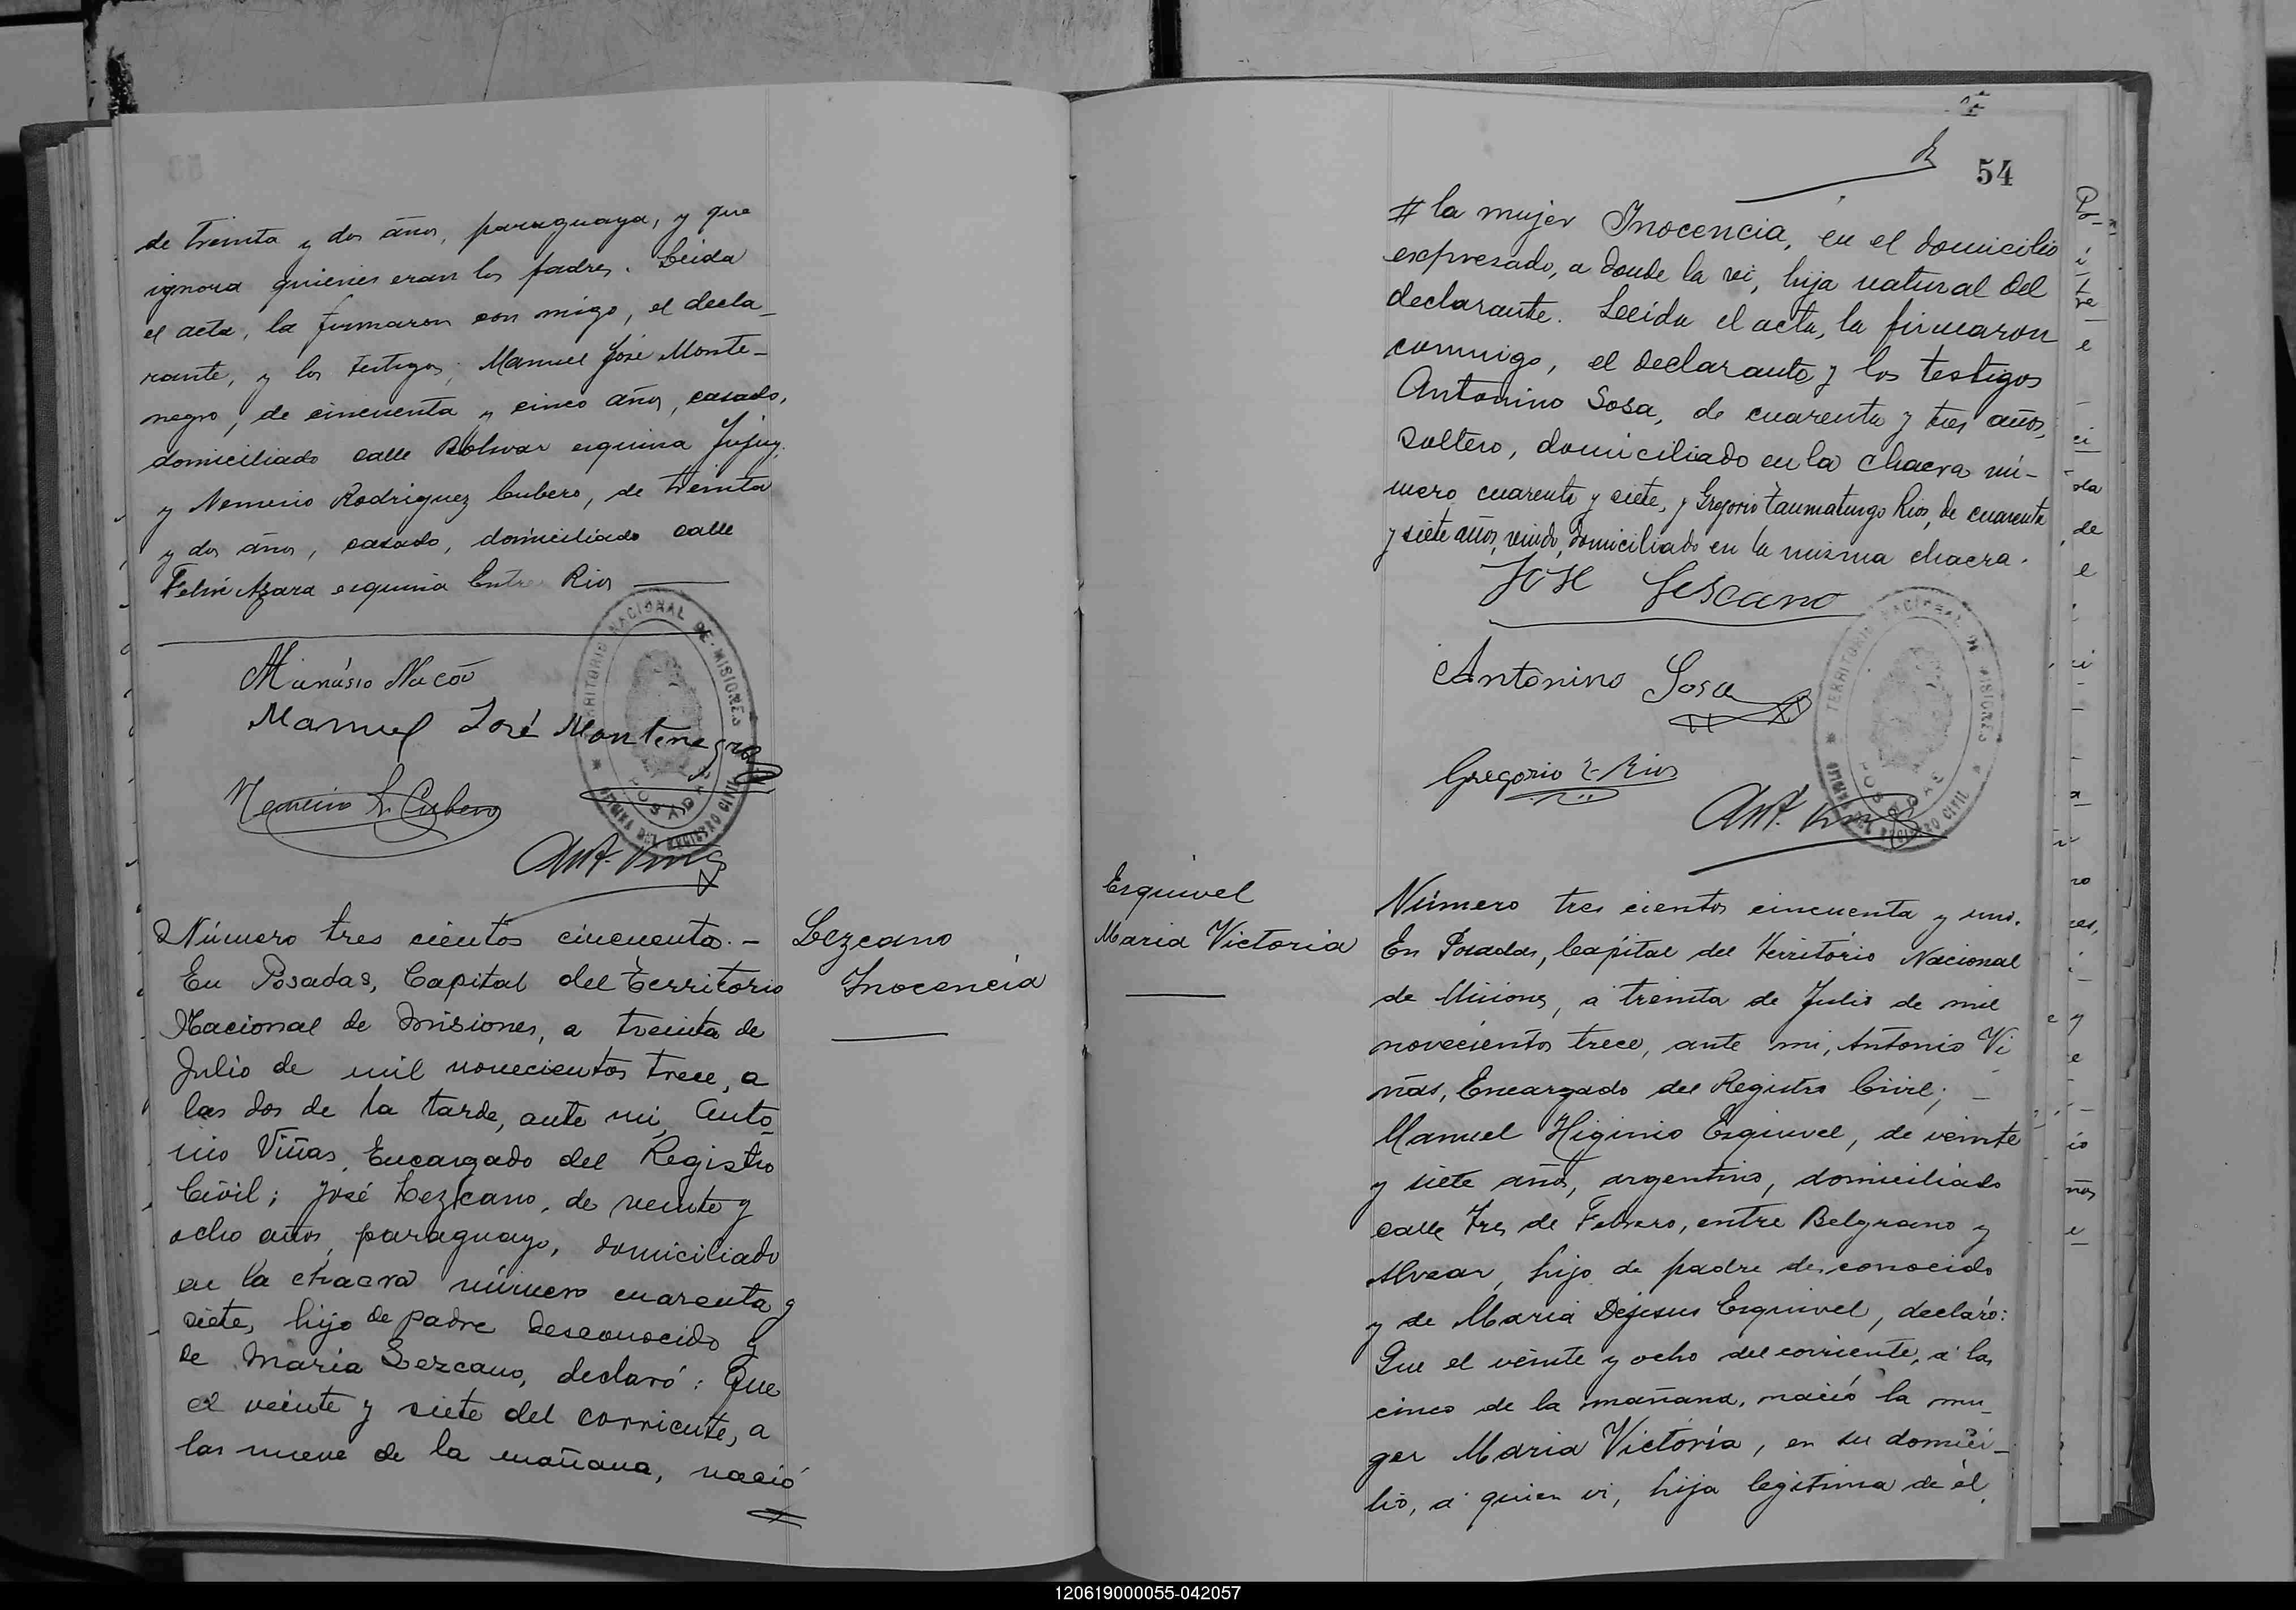 de treinta y dos años, paraguaya, y que
ignora quienes eran los padres. Leida
el acta, la firmaron con migo, el decla-
rante, y los testigos; Manuel José Monte-
negro, de cincuenta y cinco años, casado,
domiciliado calle Bolivar esquina Jujuy
y Nemecio Rodriguez Cubero, de treinta
y dos años, casado, domiciliado calle
Felix Azara esquina Entre Rios
Manuel José Montenegro
Nemecio R. Cubero
TERRITORIO NACIONAL DE MISIONES
POSADAS
OFICINA DEL REGISTRO CIVIL
Ant. Viñas
Número tres cientos cincuenta. -
En Posadas, Capital del Territorio
Nacional de Misiones, a treinta de
Julio de mil novecientos trece, a
las dos de la tarde, ante mi, Anto-
nio Viñas, Encargado del Registro
Civil; José Lezcano, de veinte y
ocho años, paraguayo, domiciliado
en la chacra número cuarenta y
siete, hijo de padre desconocido y
de Maria Lezcano, declaró: Que
el veinte y siete del corriente, a
las nueve de la mañana, nació
#
Lezcano
Inocencia
54
# la mujer Inocencia, en el domicilio
expresado, a donde la vi, hija natural del
declarante. Leida el acta, la firmaron
conmigo, el declarante y los testigos
Antonino Sosa, de cuarenta y tres años,
soltero, domiciliado en la chacra nú-
mero cuarenta y siete, y Gregorio Taumaturgo Rios, de cuarenta
y siete años, viudo, domiciliado en la misma chacra.
José Lescano
Antonino Sosa
Gregorio T. Rios
TERRITORIO NACIONAL DE MISIONES
POSADAS
OFICINA DEL REGISTRO CIVIL
Ant. Viñas
Esquivel
Maria Victoria
Número tres cientos cincuenta y uno.
En Posadas, Capital del Territorio Nacional
de Misiones, a treinta de Julio de mil
novecientos trece, ante mi, Antonio Vi
ñas, Encargado del Registro Civil; -
Manuel Higinio Esquivel, de veinte
y siete años, argentino, domiciliado
calle Tres de Febrero, entre Belgrano y
Alvear, hijo de padre desconocido
y de Maria Dejesus Esquivel, declaró:
Que el veinte y ocho del corriente, á las
cinco de la mañana, nació la mu-
ger Maria Victoria, en su domici-
lio, á quien vi, hija legitima de él,
120619000055-042057